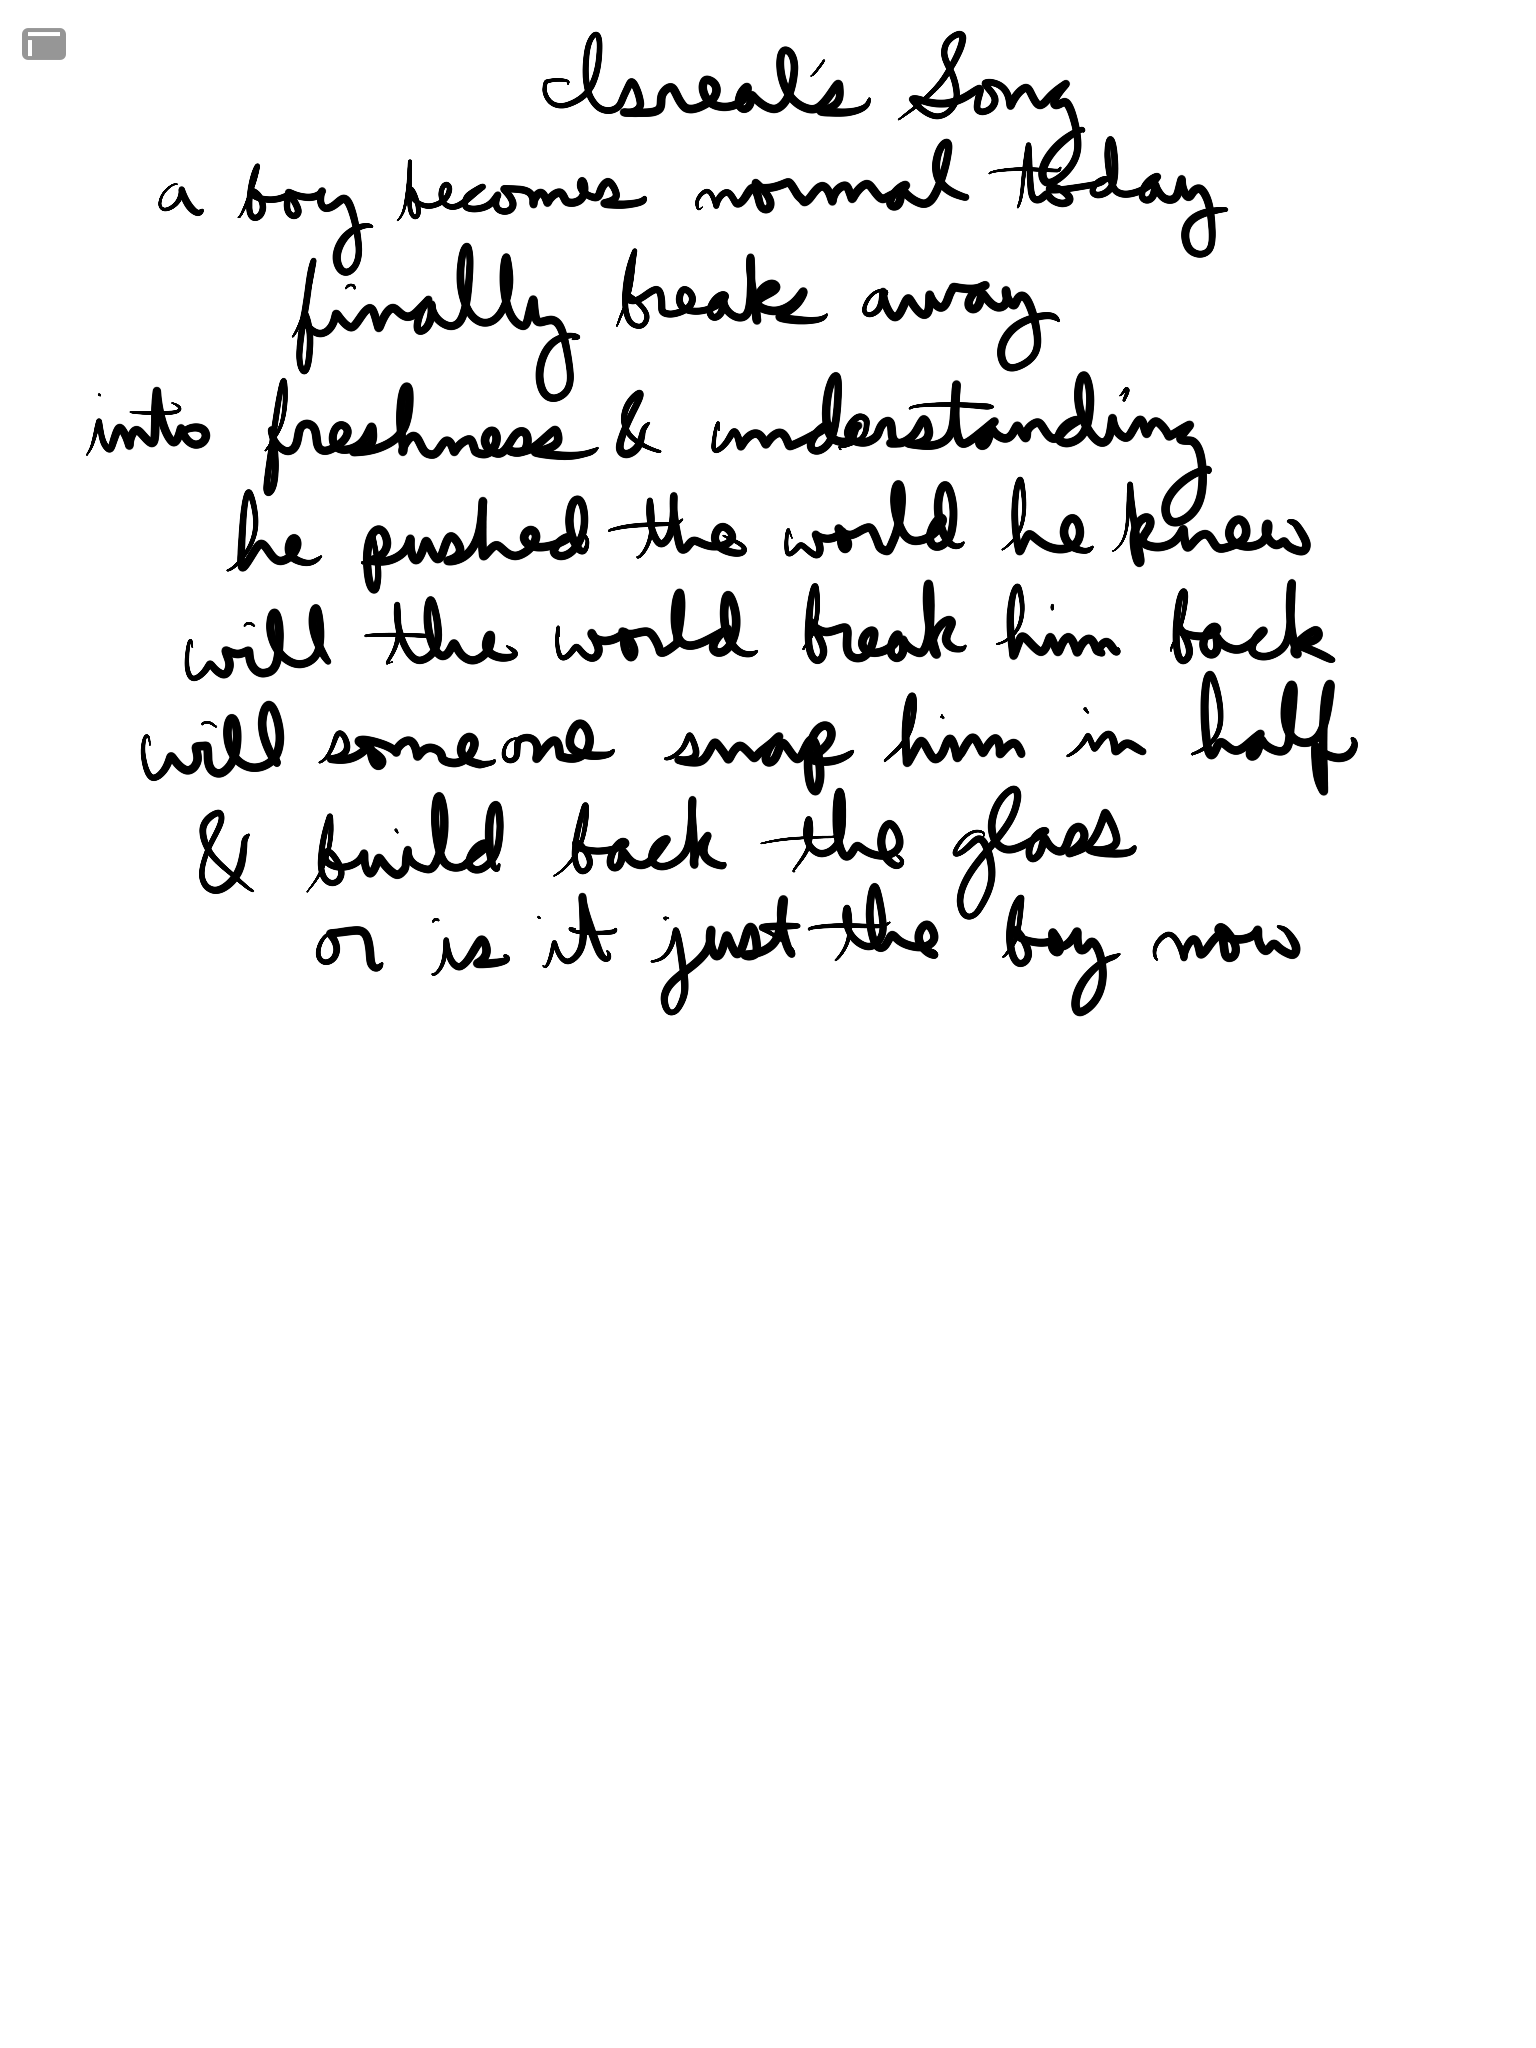 Isreal's Song
a boy becomes normal today
finally breaks away
into freshness & understanding
he pushed the world he knew
will the world break him back
will someone snap him in half
& build back the glass
or is it just the boy now